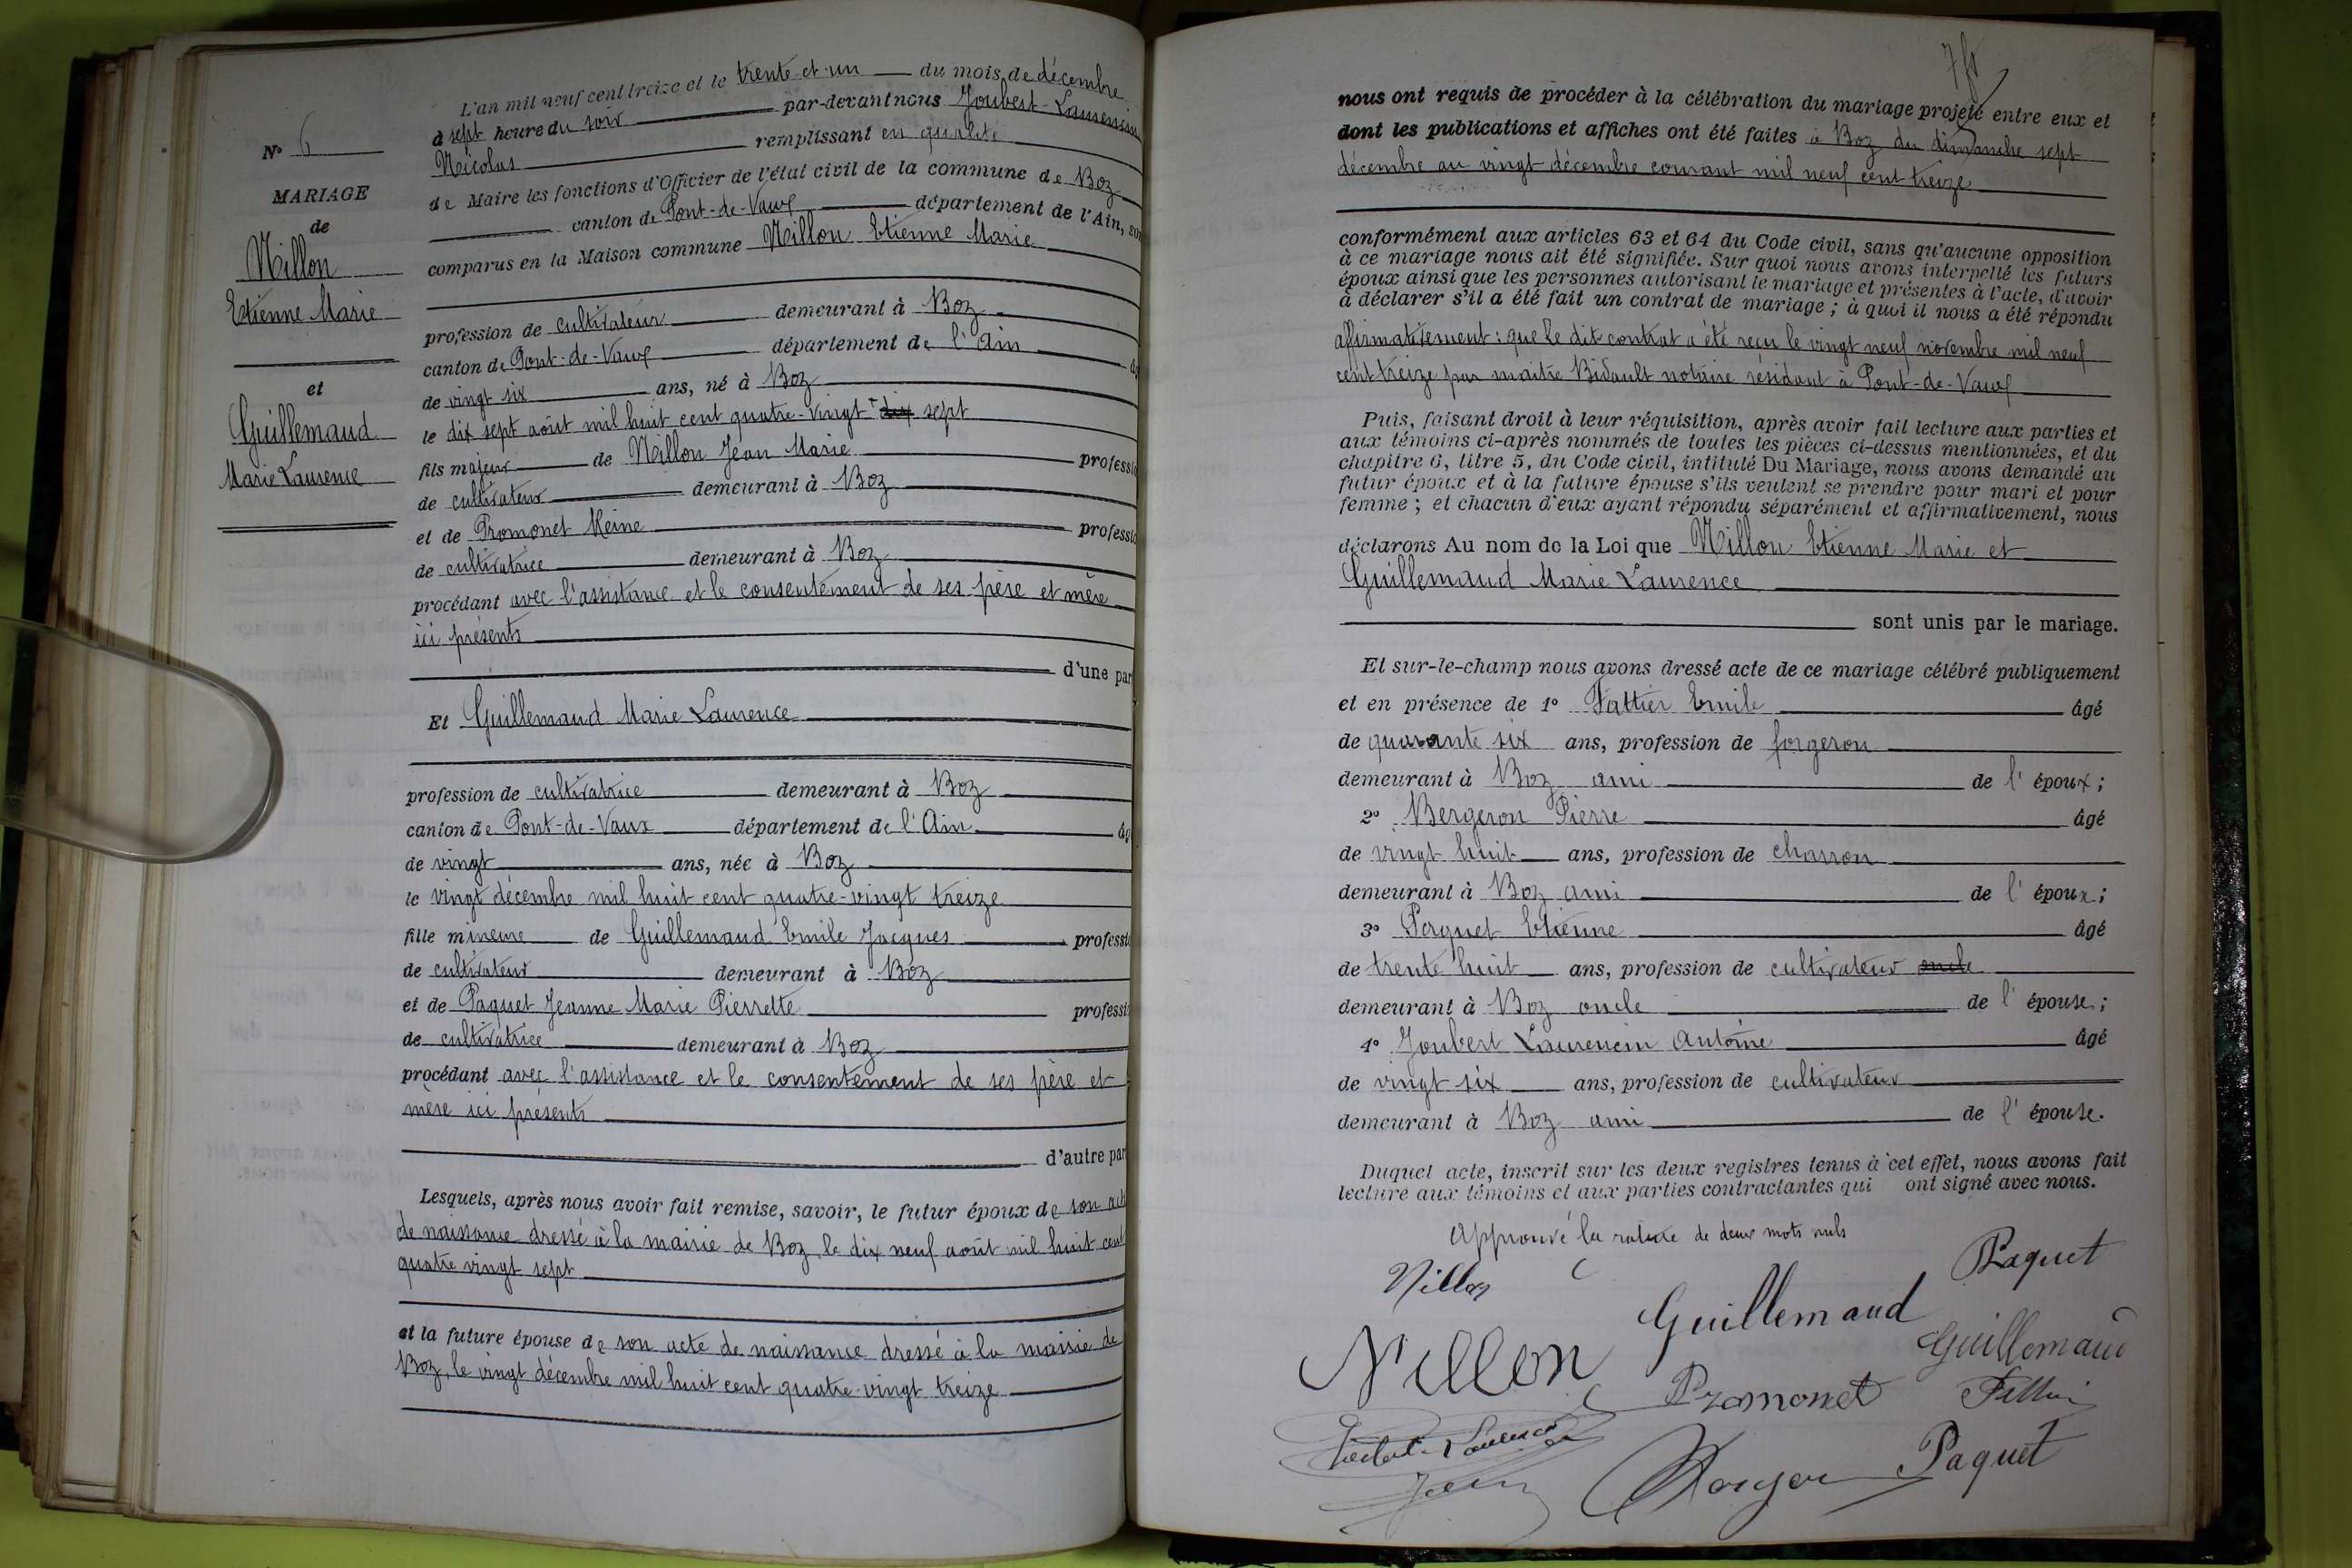 L'an mil neuf cent treize et le trente-et-un du mois de décembre
à sept heure du soir par-devant nous Joubert-Laurencin
Nicolas remplissant en qualité
de Maire les fonctions d'Officier de l'état civil de la commune de Boz
canton de Pont-de-Vaux département de l'Ain, son
comparus en la Maison commune Nillon Etienne Marie
profession de cultivateur demeurant à Boz
canton de Pont-de-Vaux département de l'Ain âg
de vingt six ans, né à Boz
le dix sept août mil huit cent quatre-vingt dix sept
fils majeur de Nillon Jean Marie professio
de cultivateur demeurant à Boz
et de Promonet Reine professio
de cultivatrice demeurant à Boz
procédant avec l'assistance et le consentement de ses père et mère
ici présents
d'une par
Et Guillemaud Marie Laurence
profession de cultivatrice demeurant à Boz
canton de Pont-de-Vaux département de l'Ain âg
de vingt ans, née à Boz
le vingt décembre mil huit cent quatre-vingt treize
fille mineure de Guillemaud Emile Jacques professio
de cultivateur demeurant à Boz
et de Paquet Jeanne Marie Pierrette professi
de cultivatrice demeurant à Boz
procédant avec l'assistance et le consentement de ses père et
mère ici présents
d'autre par
Lesquels, après nous avoir fait remise, savoir, le futur époux de son acte
de naissance dressé à la mairie de Boz, le dix neuf août mil huit cent
quatre vingt sept
et la future épouse de son acte de naissance dressé à la mairie de
Boz, le vingt décembre mil huit cent quatre-vingt treize
N° 6
MARIAGE
de
Nillon
Etienne Marie
et
Guillemaud
Marie Laurence
nous ont requis de procéder à la célébration du mariage projeté entre eux et
dont les publications et affiches ont été faites à Boz du dimanche sept
décembre au vingt décembre courant mil neuf cent treize
conformément aux articles 63 et 64 du Code civil, sans qu'aucune opposition
à ce mariage nous ait été signifiée. Sur quoi nous avons interpellé les futurs
époux ainsi que les personnes autorisant le mariage et présentes à l'acte, d'avoir
à déclarer s'il a été fait un contrat de mariage ; à quoi il nous a été répondu
affirmativement : que le dit contrat a été reçu le vingt neuf novembre mil neuf
cent treize par maitre Bidault notaire résidant à Pont-de-Vaux
Puis, faisant droit à leur réquisition, après avoir fait lecture aux parties et
aux témoins ci-après nommés de toutes les pièces ci-dessus mentionnées, et du
chapitre 6, titre 5, du Code civil, intitulé Du Mariage, nous avons demandé au
futur époux et à la future épouse s'ils veulent se prendre pour mari et pour
femme ; et chacun d'eux ayant répondu séparément et affirmativement, nous
déclarons Au nom de la Loi que Nillon Etienne Marie et
Guillemaud Marie Laurence
sont unis par le mariage.
Et sur-le-champ nous avons dressé acte de ce mariage célébré publiquement
et en présence de 1° Fattier Emile âgé
de quarante six ans, profession de forgeron
demeurant à Boz ami de l'époux ;
2° Bergeron Pierre âgé
de vingt huit ans, profession de charron
demeurant à Boz ami de l'époux ;
3° Paquet Etienne âgé
de trente huit ans, profession de cultivateur oncle
demeurant à Boz oncle de l'épouse ;
4° Joubert Laurencin Antoine âgé
de vingt six ans, profession de cultivateur
demeurant à Boz ami de l'épouse.
Duquel acte, inscrit sur les deux registres tenus à cet effet, nous avons fait
lecture aux témoins et aux parties contractantes qui ont signé avec nous.
Approuvé la rature de deux mots nuls
Nillon
Paquet
Guillemaud
Nillon
Guillemaud
Promonet
Paquet